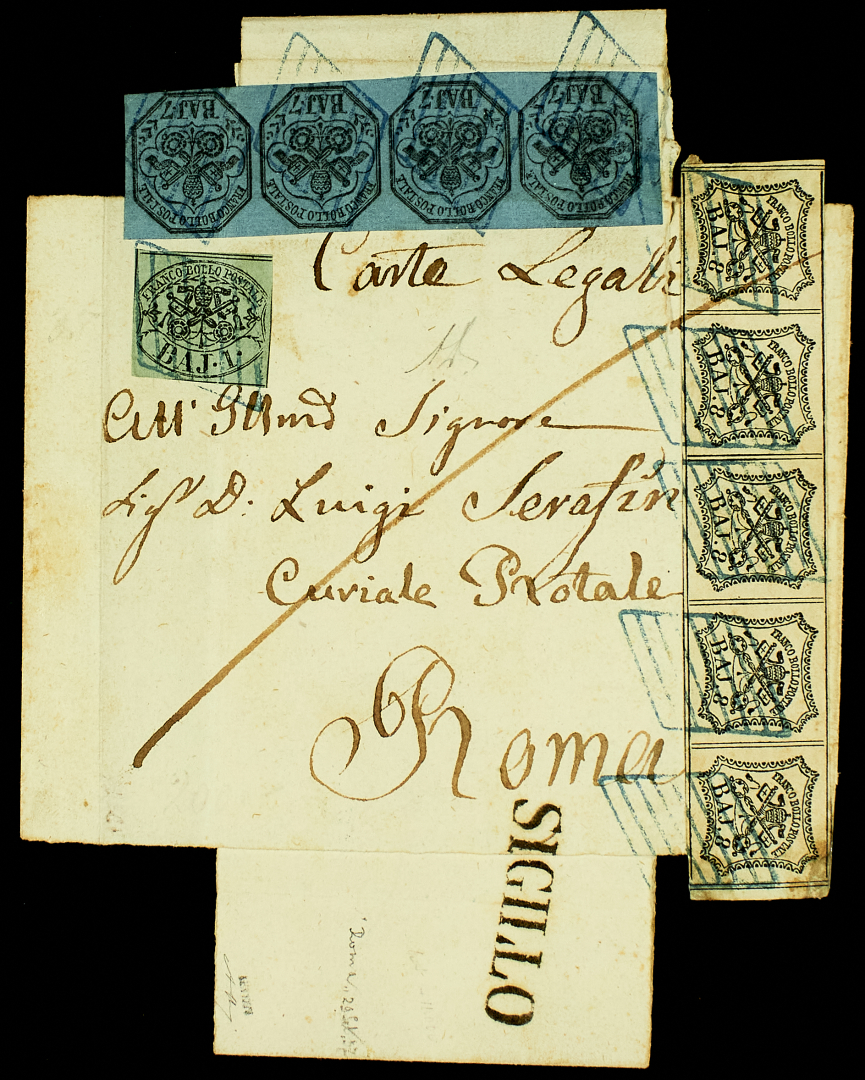 BAJ·7 BAJ·7 BAJ·7 BAJ·7
FRANCO BOLLO POSTALE FRANCO BOLLO POSTALE FRANCO BOLLO POSTALE FRANCO BOLLO POSTALE
FRANCO BOLLO POSTALE
BAJ·1·
Carte Legali
All' Illmo Signore
Sigr D: Luigi Serafin
Curiale Rotale
Roma
FRANCO BOLLO POSTALE
BAJ·8
FRANCO BOLLO POSTALE
BAJ·8
FRANCO BOLLO POSTALE
BAJ·8
FRANCO BOLLO POSTALE
BAJ·8
FRANCO BOLLO POSTALE
BAJ·8
SIGILLO
Roma